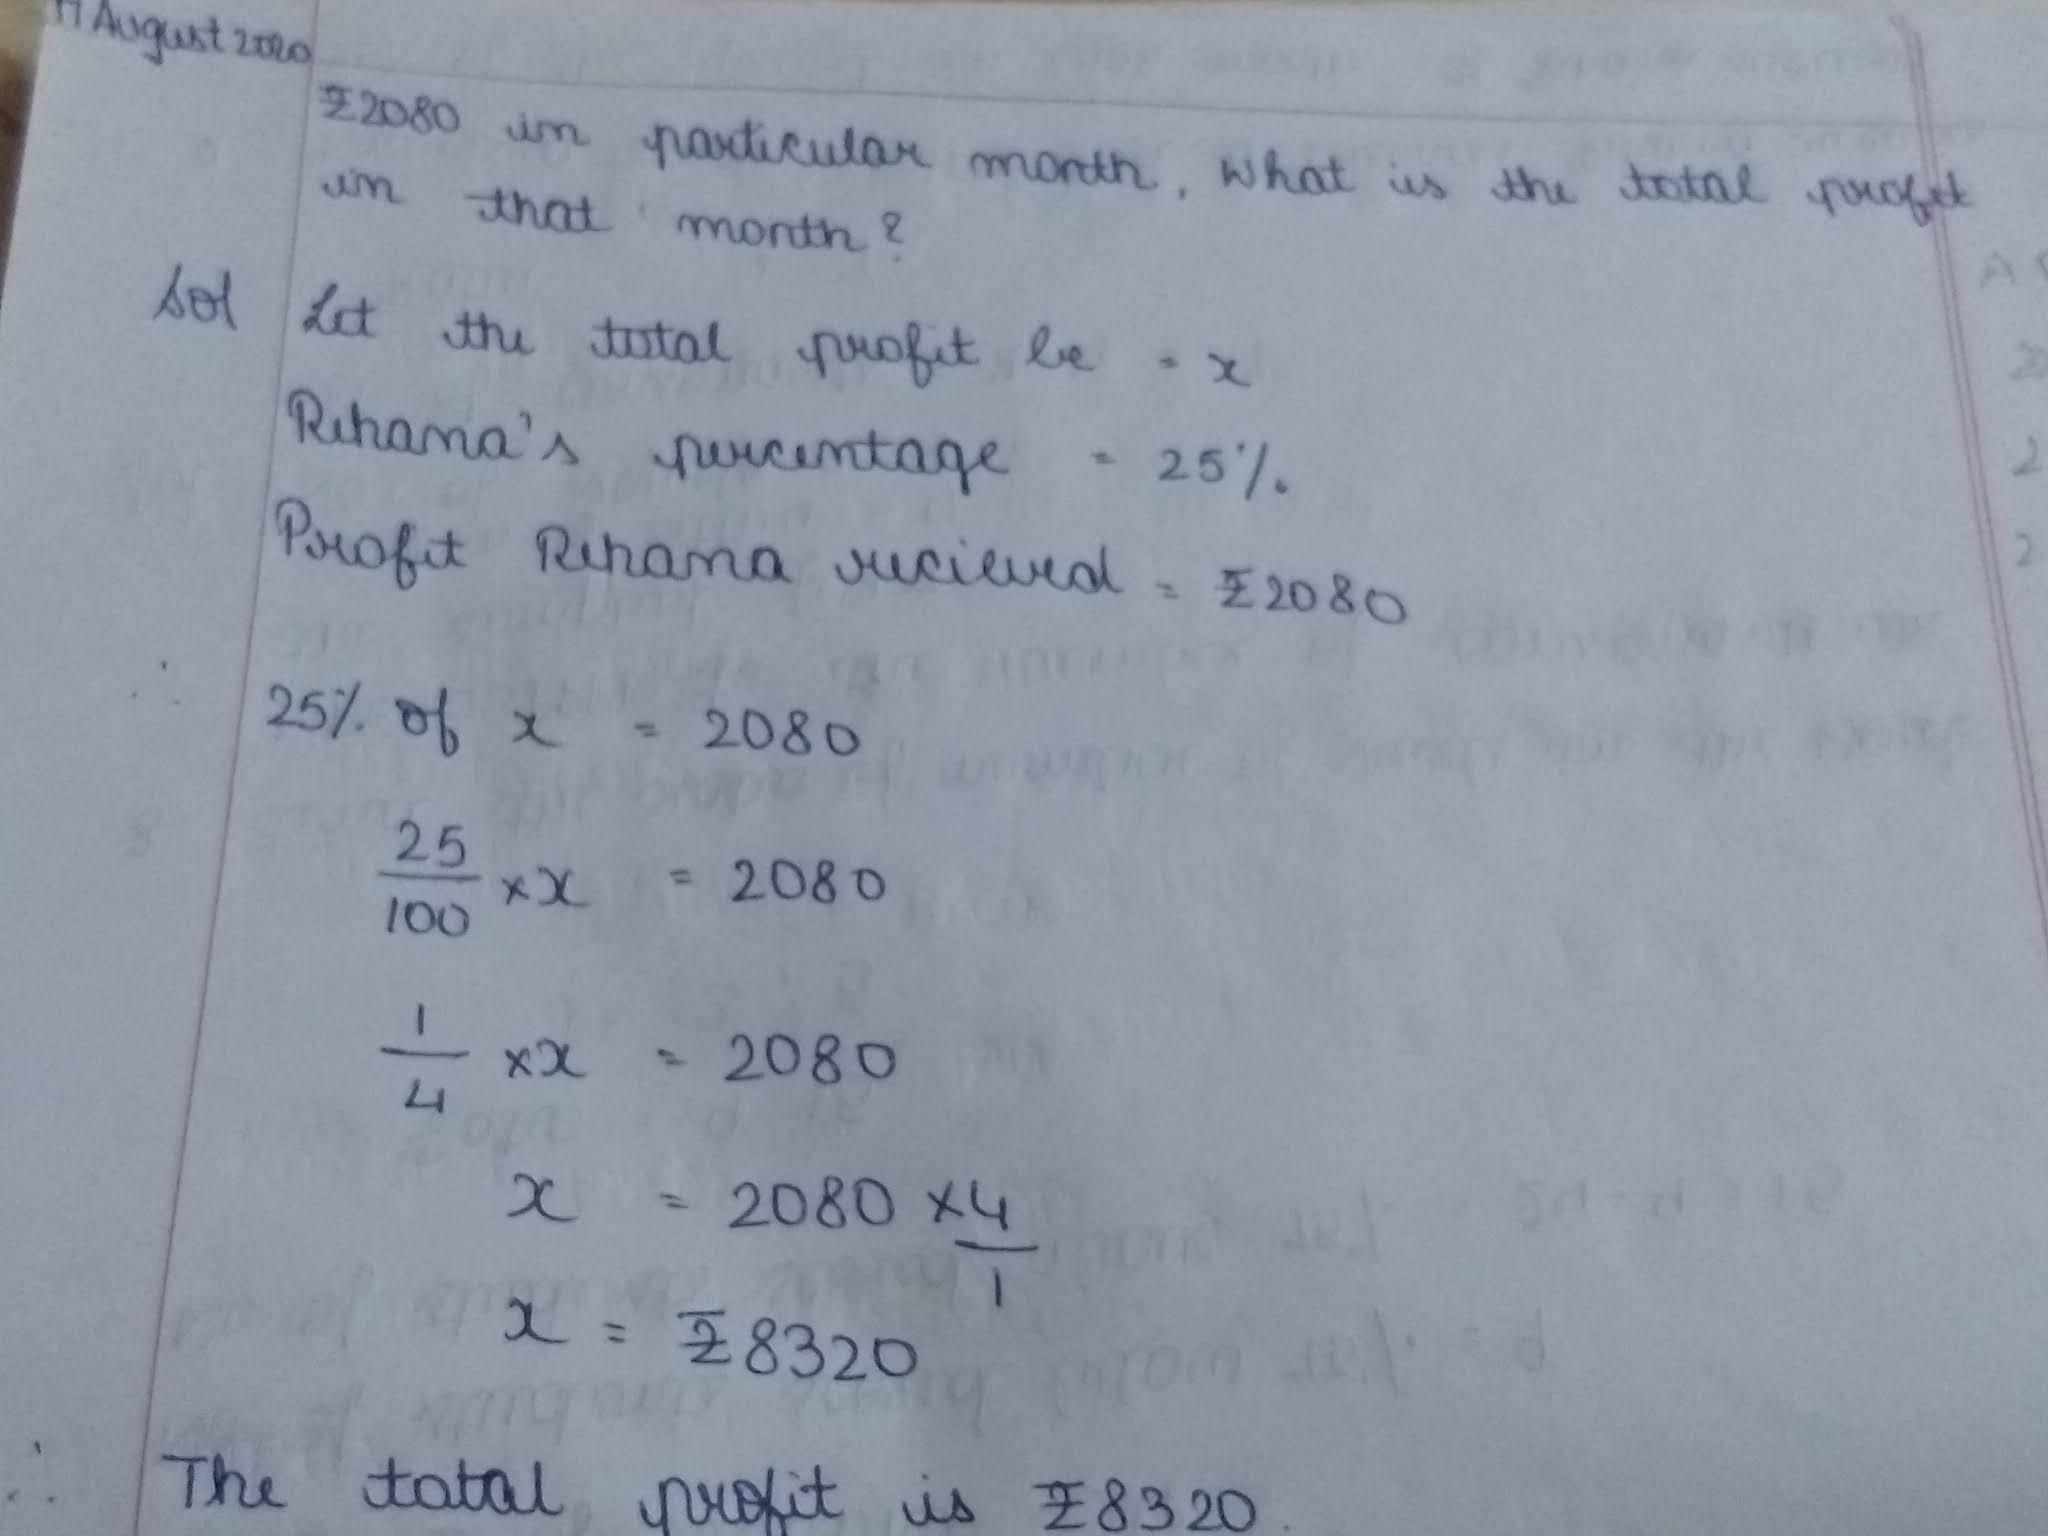 August 2020
₹2080 in particular month, what is the total profit
in that month?
Sol Let the total profit be = x
Rehana's percentage = 25%.
Profit Rehana recieved = ₹2080
∴ 25% of x = 2080
25/100 × x = 2080
1/4 × x = 2080
x = 2080 × 4/1
x = ₹8320
∴ The total profit is ₹8320.